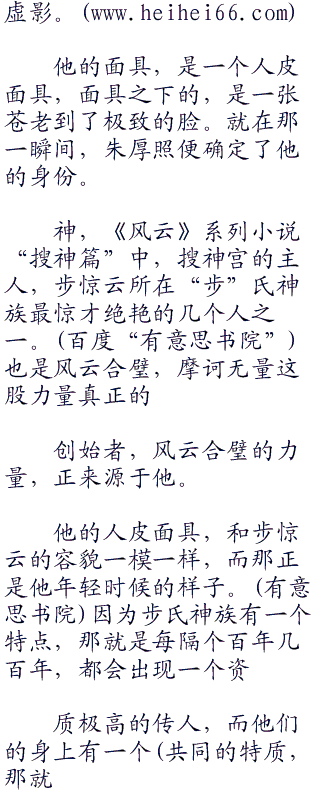 虚影。(www.heihei66.com)
他的面具，是一个人皮
面具，面具之下的，是一张
苍老到了极致的脸。就在那
一瞬间，朱厚照便确定了他
的身份。
神，《风云》系列小说
“搜神篇”中，搜神宫的主
人，步惊云所在“步”氏神
族最惊才绝艳的几个人之
一。(百度“有意思书院”)
也是风云合璧，摩诃无量这
股力量真正的
创始者，风云合璧的力
量，正来源于他。
他的人皮面具，和步惊
云的容貌一模一样，而那正
是他年轻时候的样子。(有意
思书院)因为步氏神族有一个
特点，那就是每隔个百年几
百年，都会出现一个资
质极高的传人，而他们
的身上有一个(共同的特质，
那就